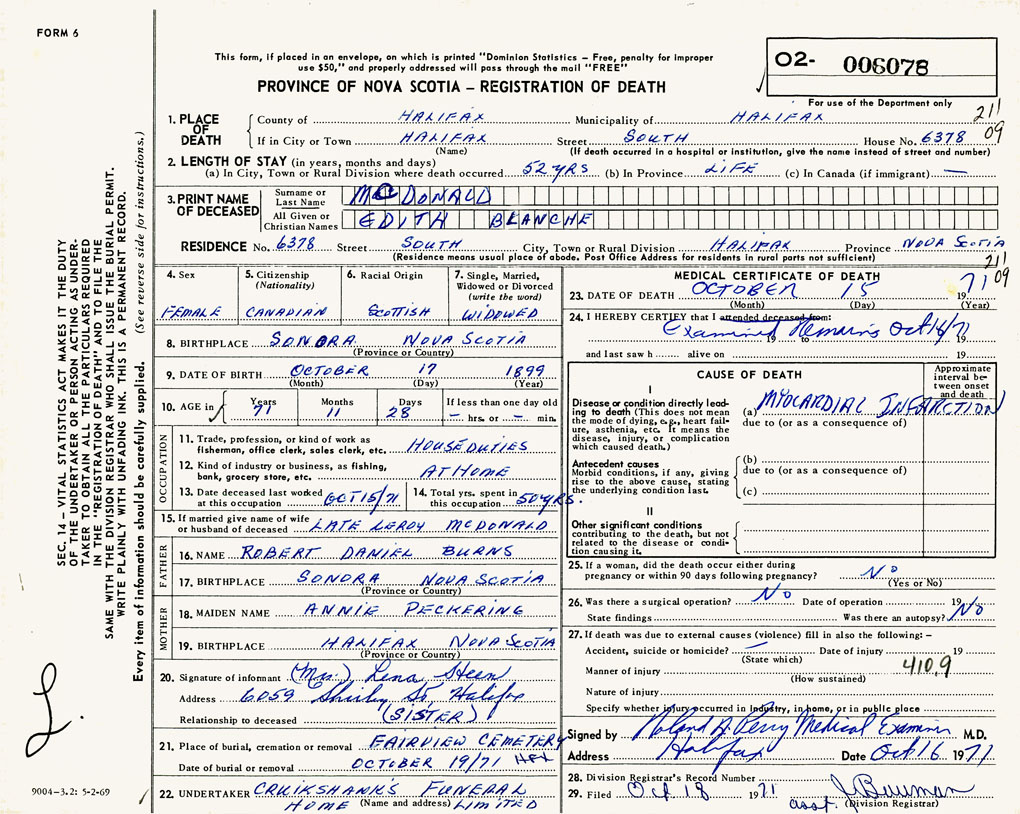 FORM 6
This form, if placed in an envelope, on which is printed "Dominion Statistics – Free, penalty for improper
use $50," and properly addressed will pass through the mail "FREE"
O2- 006078
PROVINCE OF NOVA SCOTIA – REGISTRATION OF DEATH
For use of the Department only
211
09
1. PLACE OF DEATH
County of HALIFAX Municipality of HALIFAX
If in City or Town HALIFAX Street SOUTH House No. 6378
(Name) (If death occurred in a hospital or institution, give the name instead of street and number)
2. LENGTH OF STAY (in years, months and days)
(a) In City, Town or Rural Division where death occurred 52 YRS (b) In Province LIFE (c) In Canada (if immigrant) —
3. PRINT NAME OF DECEASED
Surname or Last Name McDONALD
All Given or Christian Names EDITH BLANCHE
RESIDENCE No. 6378 Street SOUTH City, Town or Rural Division HALIFAX Province NOVA SCOTIA
(Residence means usual place of abode. Post Office Address for residents in rural parts not sufficient)
211
09
4. Sex
FEMALE
5. Citizenship
(Nationality)
CANADIAN
6. Racial Origin
SCOTTISH
7. Single, Married,
Widowed or Divorced
(write the word)
WIDOWED
8. BIRTHPLACE SONORA NOVA SCOTIA
(Province or Country)
9. DATE OF BIRTH OCTOBER 17 1899
(Month) (Day) (Year)
10. AGE in
Years Months Days If less than one day
71 11 28 — hrs. or — min.
OCCUPATION
11. Trade, profession, or kind of work as
fisherman, office clerk, sales clerk, etc. HOUSE DUTIES
12. Kind of industry or business, as fishing,
bank, grocery store, etc. AT HOME
13. Date deceased last worked
at this occupation OCT 15/71
14. Total yrs. spent in
this occupation 50 YRS.
15. If married give name of wife
or husband of deceased LATE LEROY McDONALD
FATHER
16. NAME ROBERT DANIEL BURNS
17. BIRTHPLACE SONORA NOVA SCOTIA
(Province or Country)
MOTHER
18. MAIDEN NAME ANNIE PECKERING
19. BIRTHPLACE HALIFAX NOVA SCOTIA
(Province or Country)
20. Signature of informant (Mrs.) Lena Steen
Address 6059 Shirley St. Halifax
Relationship to deceased (SISTER)
21. Place of burial, cremation or removal FAIRVIEW CEMETERY
Date of burial or removal OCTOBER 19/71 HFX
22. UNDERTAKER CRUIKSHANK'S FUNERAL
HOME (Name and address) LIMITED
MEDICAL CERTIFICATE OF DEATH
23. DATE OF DEATH OCTOBER 15 1971
(Month) (Day) (Year)
24. I HEREBY CERTIFY that I attended deceased from:
Examined Remains Oct 16/71
19 to 19
and last saw h alive on 19
CAUSE OF DEATH
Approximate
interval be-
tween onset
and death
I
Disease or condition directly lead-
ing to death (This does not mean
the mode of dying, e.g., heart fail-
ure, asthenia, etc. It means the
disease, injury, or complication
which caused death.)
(a) MYOCARDIAL INFARCTION
due to (or as a consequence of)
Antecedent causes
Morbid conditions, if any, giving
rise to the above cause, stating
the underlying condition last.
(b)
due to (or as a consequence of)
(c)
II
Other significant conditions
contributing to the death, but not
related to the disease or condi-
tion causing it.
25. If a woman, did the death occur either during
pregnancy or within 90 days following pregnancy? No
(Yes or No)
26. Was there a surgical operation? No Date of operation 19
State findings Was there an autopsy? No
27. If death was due to external causes (violence) fill in also the following: –
Accident, suicide or homicide? — Date of injury 19
(State which)
Manner of injury 410.9
(How sustained)
Nature of injury
Specify whether injury occurred in industry, in home, or in public place
Signed by Roland A. Perry Medical Examiner M.D.
Address Halifax Date Oct 16 1971
28. Division Registrar's Record Number
29. Filed Oct 18 1971 J Bauman
asst. (Division Registrar)
SEC. 14 – VITAL STATISTICS ACT MAKES IT THE DUTY
OF THE UNDERTAKER OR PERSON ACTING AS UNDER-
TAKER TO OBTAIN ALL THE PARTICULARS REQUIRED
IN THE "REGISTRATION OF DEATH" AND TO FILE THE
SAME WITH THE DIVISION REGISTRAR WHO SHALL ISSUE THE BURIAL PERMIT.
WRITE PLAINLY WITH UNFADING INK. THIS IS A PERMANENT RECORD.
Every item of information should be carefully supplied. (See reverse side for instructions.)
L.
9004-3.2: 5-2-69